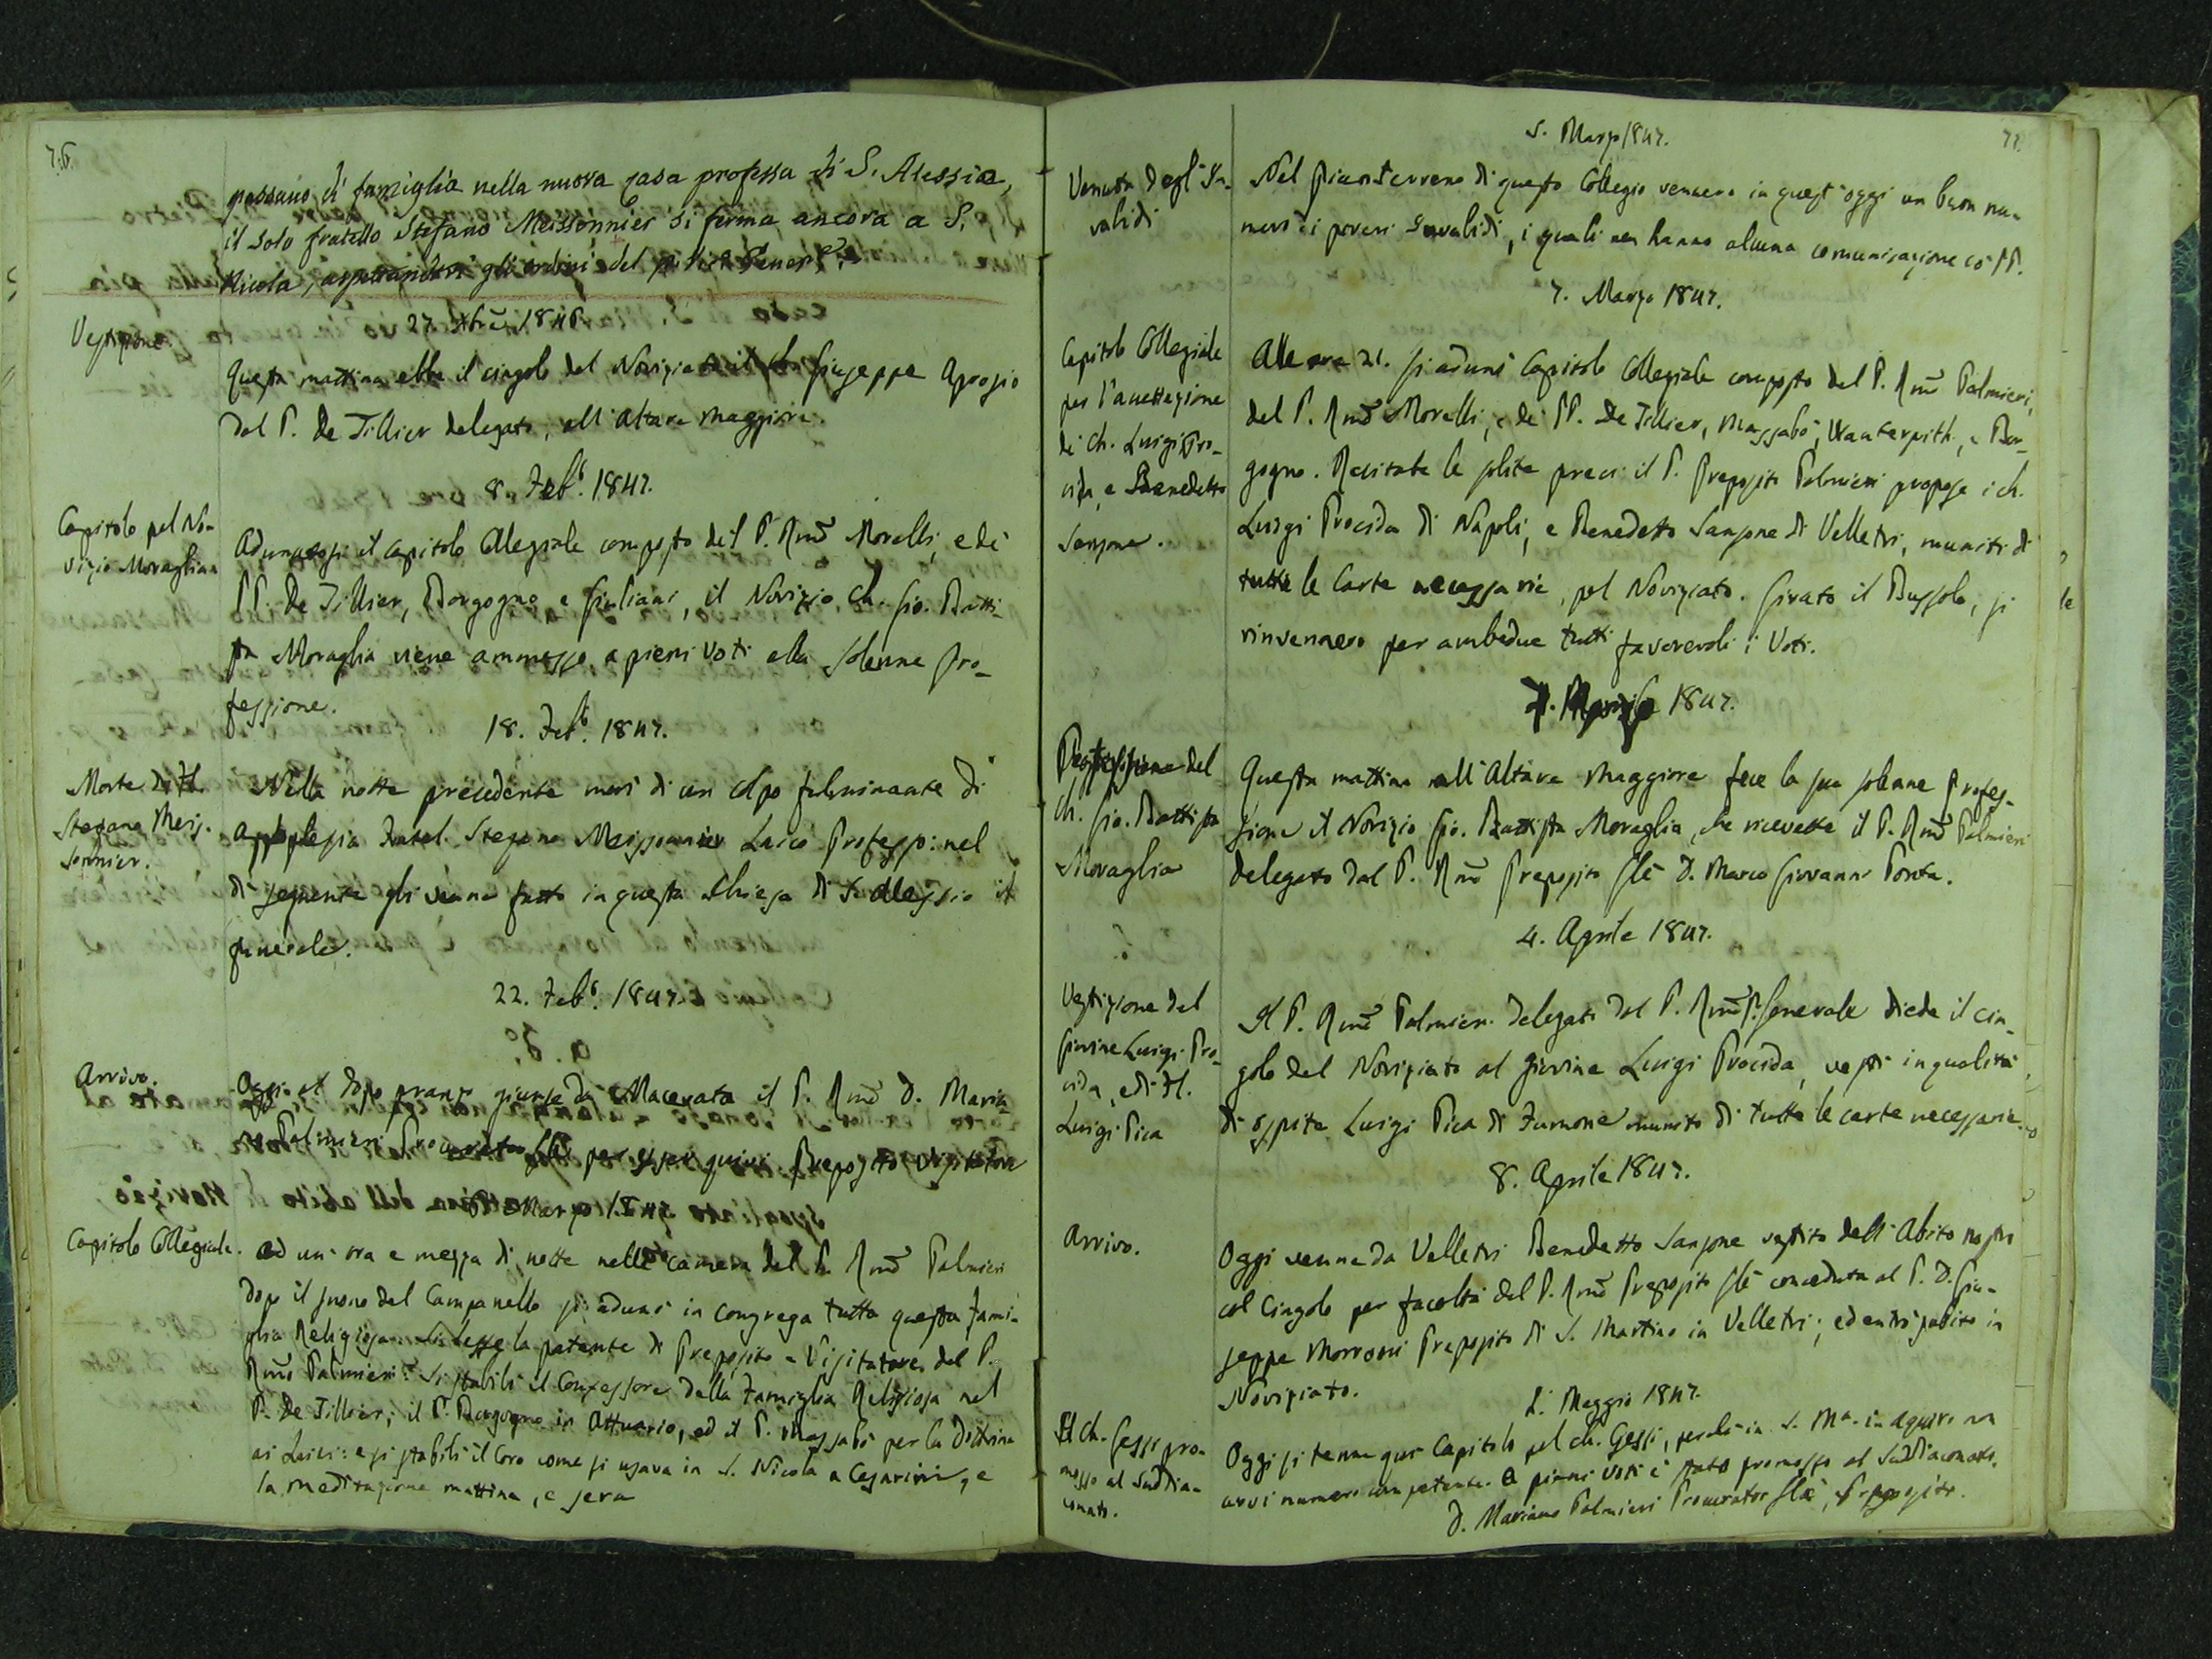 76.
passano di famiglia nella nuova casa professa di S. Alessio,
il solo fratello Stefano Meissonnier si ferma ancora a S.
Nicola, aspettandosi gli ordini del padre Generale.
27. Xbre 1846.
Vestizione.
Questa mattina ebbe il cingolo del Noviziato il Giuseppe
dal P. De Tillier delegato, all'Altare Maggiore.
8. Febb. 1847.
Capitolo pel No-
vizio Moraglia
Adunatosi il Capitolo Collegiale composto del P. Rmo Morelli, e de'
PP. De Tillier, Borgogno e Giuliani, il Novizio Ch. Gio. Batti-
sta Moraglia viene ammesso a pieni voti alla solenne pro-
fessione.
18. Febb. 1847.
Morte di Fl.
Stefano Meis-
sonnier.
Nella notte precedente morì di un colpo fulminante di
apoplessia Fratel Stefano Meissonnier Laico Professo: nel
dì seguente gli venne fatto in questa Chiesa di S. Alessio il
funerale.
22. Febb. 1847.
Arrivo.
Oggi al dopo pranzo giunse da Macerata il P. Rmo D. Maria-
no Palmieri Procurator Gle per esser quivi Preposito Visitatore
Marzo 1847
Capitolo Collegiale.
Ad un'ora e mezza di notte nella camera del P. Rmo Palmieri
dopo il suono del Campanello si adunò in congrega tutta questa Fami-
glia Religiosa. Si lesse la patente di Preposito e Visitatore del P.
Rmo Palmieri. Si stabilì il Confessore della Famiglia Religiosa nel
P. De Tillier; il P. Borgogno in Attuario, ed il P. Massabò per la Dottrina
ai Laici: e si stabilì il Coro come si usava in S. Nicola a Cesarini, e
la meditazione mattina, e sera
77.
5. Marzo 1847.
Venuta degl'In-
validi
Nel pianterreno di questo Collegio vennero in quest'oggi un buon nu-
mero di poveri Invalidi, i quali non hanno alcuna comunicazione co' PP.
7. Marzo 1847.
Capitolo Collegiale
per l'accettazione
di Ch. Luigi Pro-
cida, e Benedetto
Sanzone.
Alle ore 21. si adunò Capitolo Collegiale composto del P. Rmo Palmieri,
del P. Rmo Morelli, e de' PP. De Tillier, Massabò, e Bor-
gogno. Recitate le solite preci il P. Preposito Palmieri propose i ch.
Luigi Procida di Napoli, e Benedetto Sanzone di Velletri, muniti di
tutte le Carte necessarie, pel Noviziato. Girato il Bussolo, si
rinvennero per ambedue tutti favorevoli i Voti.
1847.
Professione del
Ch. Gio. Battista
Moraglia
Questa mattina all'Altare Maggiore fece la sua solenne Profes-
sione il Novizio Gio. Battista Moraglia, che ricevette il P. Rmo Palmieri
delegato dal P. Rmo Preposito Gle D. Marco Giovanni Ponta.
4. Aprile 1847.
Vestizione del
Giovine Luigi Pro-
cida, e di Fl.
Luigi Pica
Il P. Rmo Palmieri delegato dal P. Rmo P. Generale diede il cin-
golo del Noviziato al giovine Luigi Procida, vestì in qualità
di ospite Luigi Pica di Fumone munito di tutte le carte necessarie.
8. Aprile 1847.
Arrivo.
Oggi venne da Velletri Benedetto Sanzone vestito dell'Abito nostro
col Cingolo per facoltà del P. Rmo Preposito Gle conceduta al P. D. Giu-
seppe Morroni Preposito di S. Martino in Velletri; ed entrò subito in
Noviziato.
2. Maggio 1847.
Il ch. Gessi pro-
mosso al Suddia-
conato.
Oggi si tenne qui Capitolo pel ch. Gessi, perchè in S. Ma. in Aquiro non
avvi numero competente. A pieni voti è stato promosso al Suddiaconato.
D. Mariano Palmieri Procurator Gle, e Preposito.